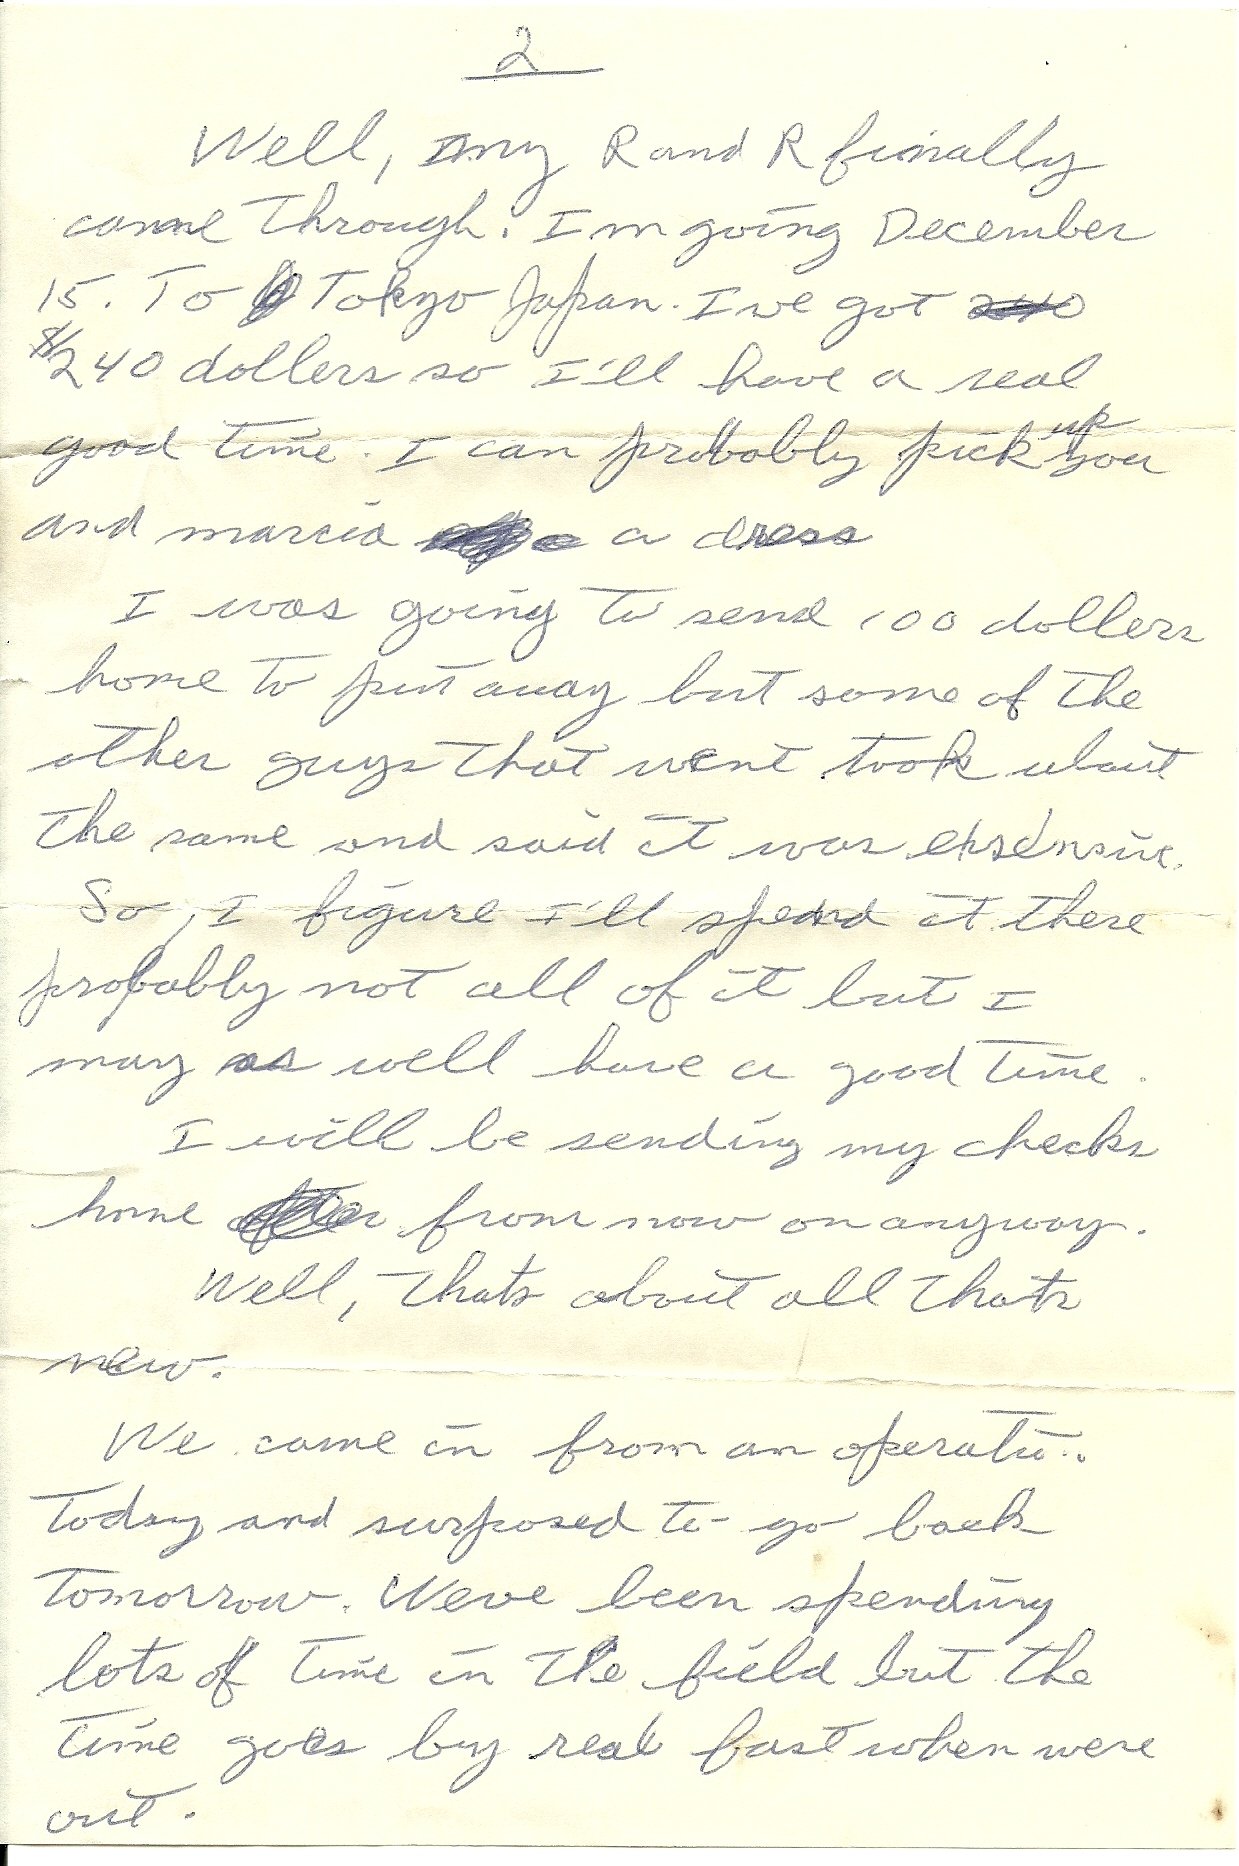 2
Well, my R and R finally
came through. Im going December
15. To Tokyo Japan. Ive got 240
$240 dollers so I'll have a real
good time. I can probably pick up you
and marcia a dress
I was going to send 100 dollers
home to put away but some of the
other guys that went took about
the same and said it was
So, I figure I'll spend it there
probably not all of it but I
may as well have a good time.
I will be sending my checks
home from now on anyway.
Well, thats about all thats
new.
We came in from an
today and surposed to go back
tomorrow. Weve been spending
lots of time in the field but the
time goes by real fast when were
out.